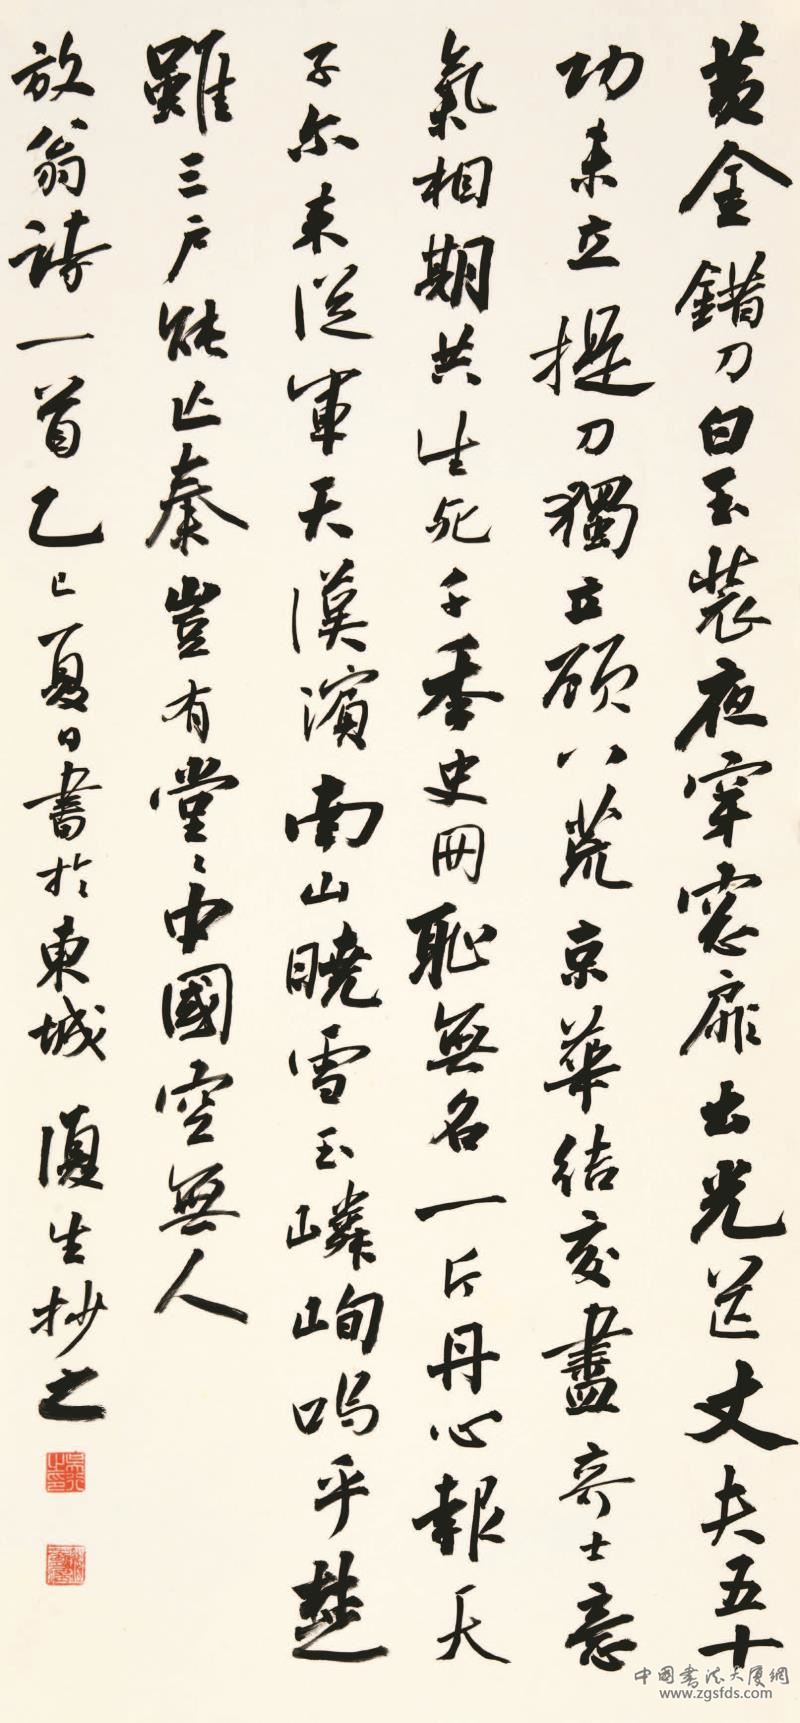 黄金錯刀白玉裝夜穿窓扉出光芒丈夫五十
功未立提刀獨立顧八荒京華結交盡奇士意
氣相期共生死千季史冊恥無名一片丹心報天
子尔来從軍天漢濱南山曉雪玉嶙峋嗚乎楚
雖三户能亡秦豈有堂〻中國空無人
放翁詩一首乙巳夏日書於東城 復生抄之
中國書法大厦網
www.zgsfds.com